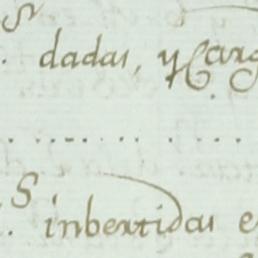 dadas, y Carg
S inbertidas e